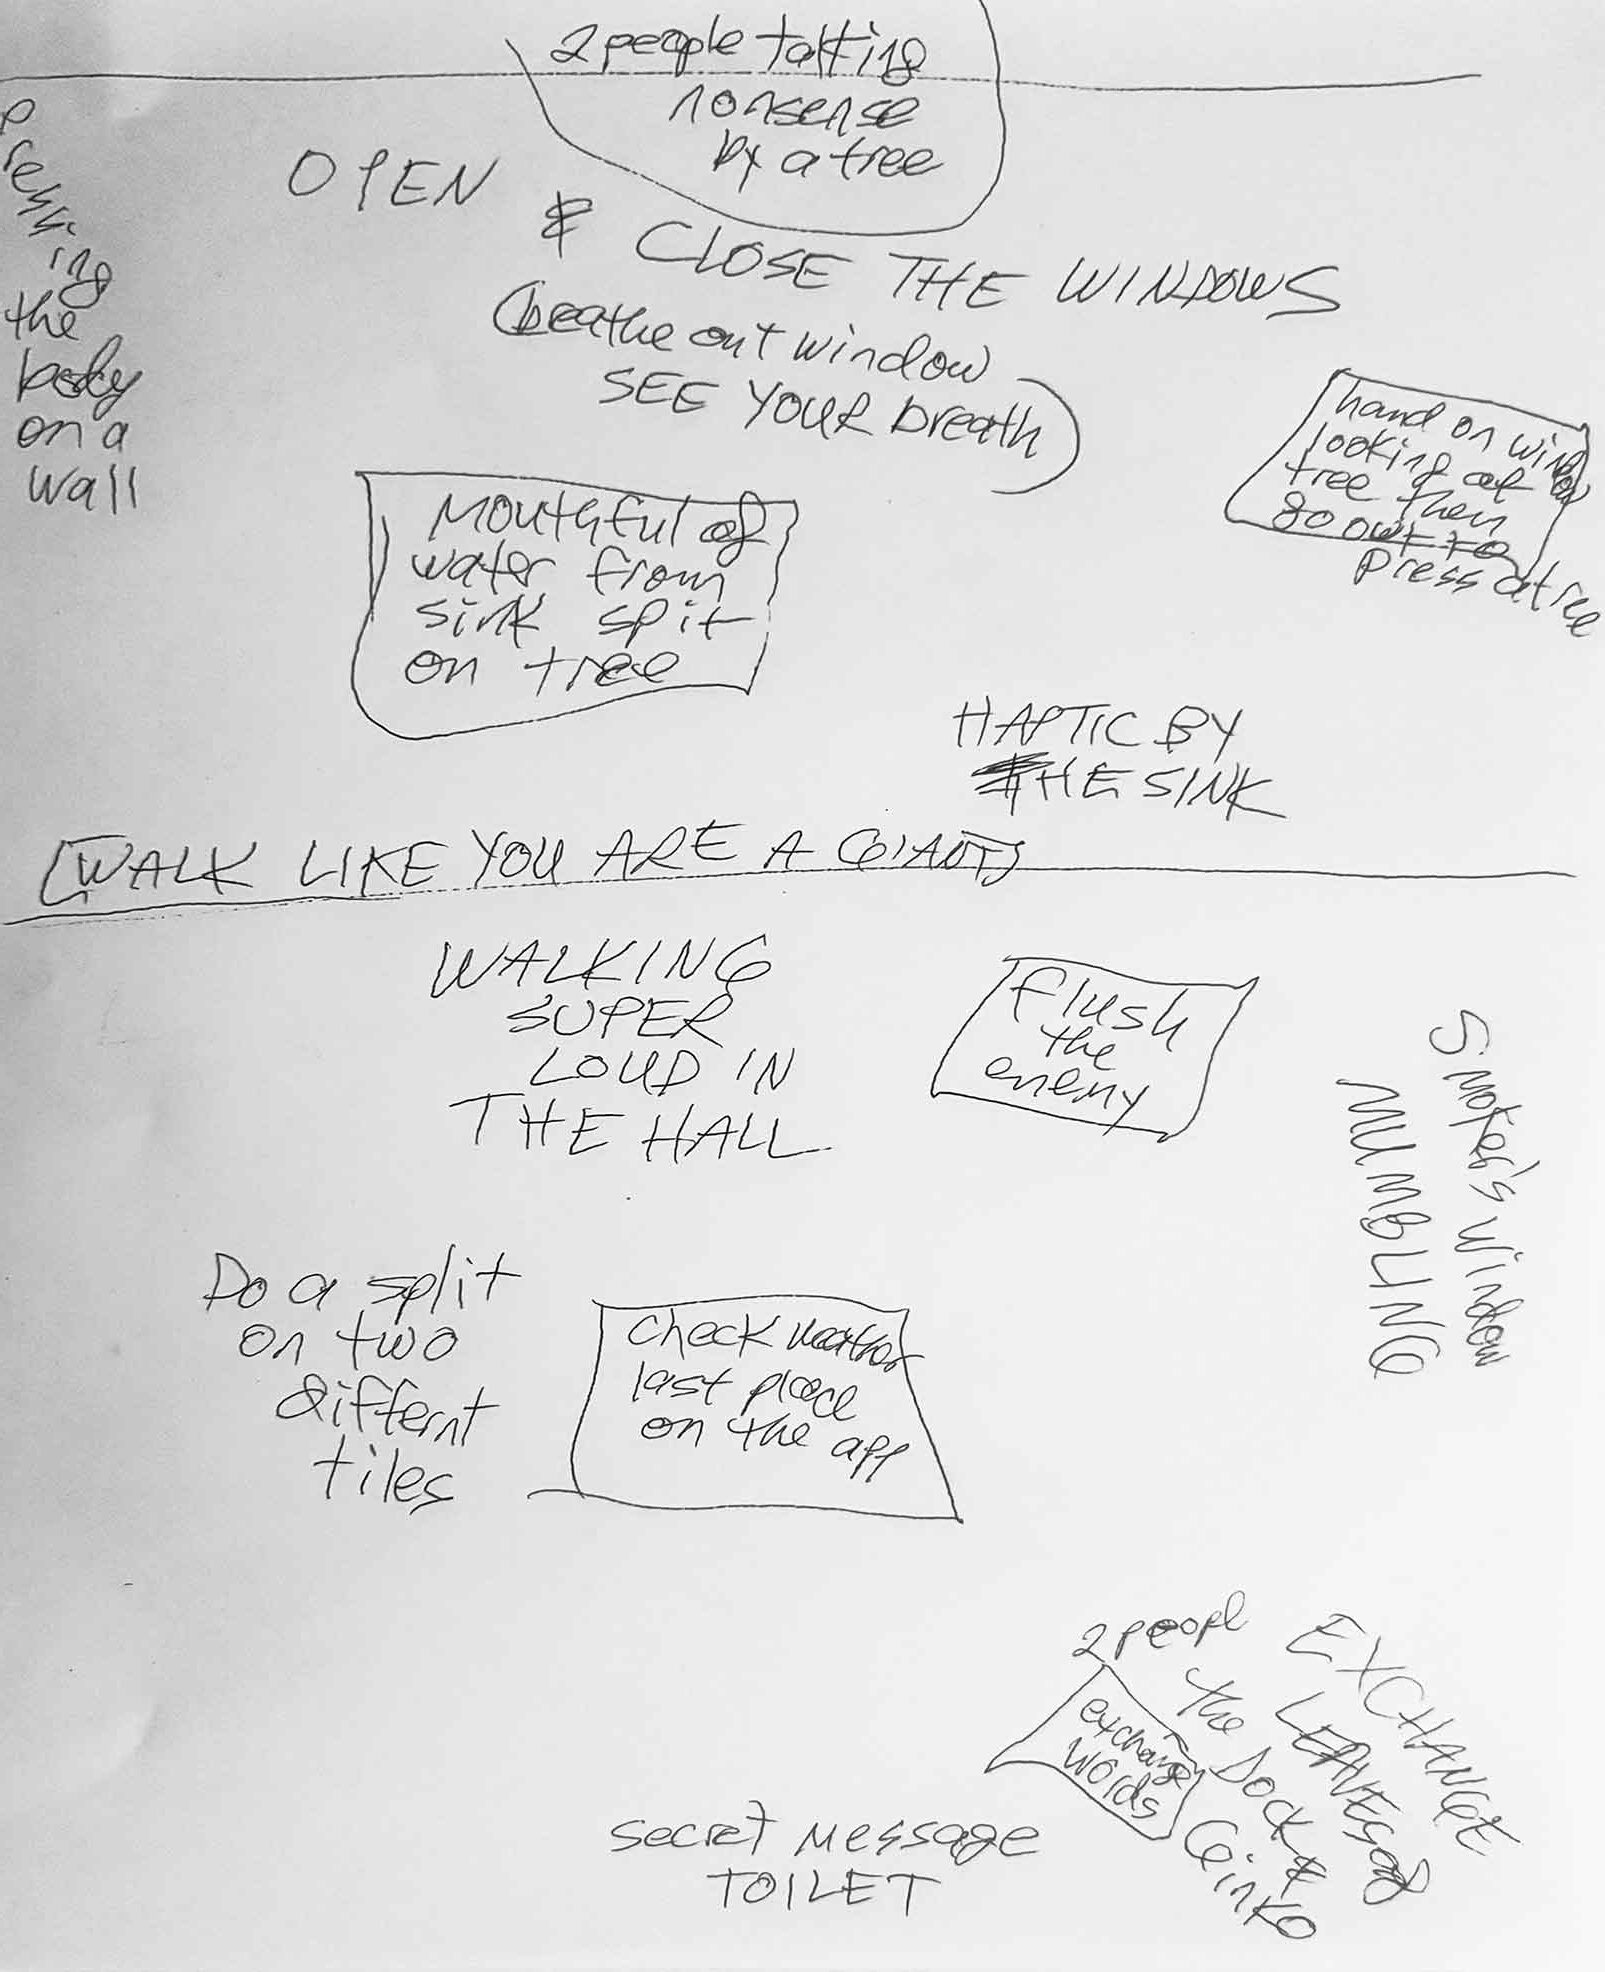 2 people talking
nonsense
by a tree
Pressing
the
body
on a
wall
OPEN & CLOSE THE WINDOWS
(breathe out window
SEE YOUR breath)
hand on window
looking at
tree then
go out to
press a tree
Mouthful of
water from
sink spit
on tree
HAPTIC BY
THE SINK
(WALK LIKE YOU ARE A GIANT)
WALKING
SUPER
LOUD IN
THE HALL
flush
the
enemy
Smoker's window
MUMBLING
Do a split
on two
differnt
tiles
check weather
last place
on the app
2 peopl
exchange
words
EXCHANGE
LEAVES of
the Dock &
Ginko
secret message
TOILET